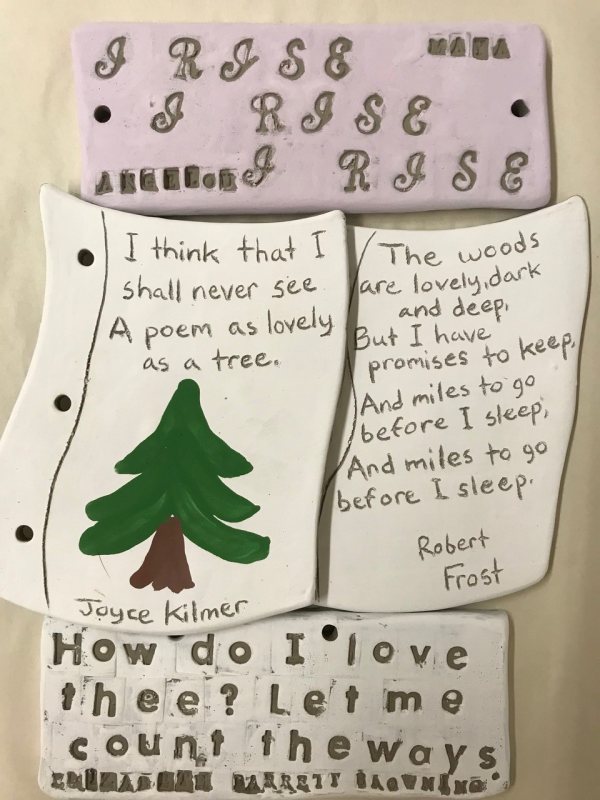 I RISE MAYA
I RISE
ANGELOU I RISE
I think that I
shall never see
A poem as lovely
as a tree.
Joyce Kilmer
The woods
are lovely, dark
and deep,
But I have
promises to keep,
And miles to go
before I sleep,
And miles to go
before I sleep.
Robert
Frost
How do I love
thee? Let me
count the ways
ELIZABETH BARRETT BROWNING